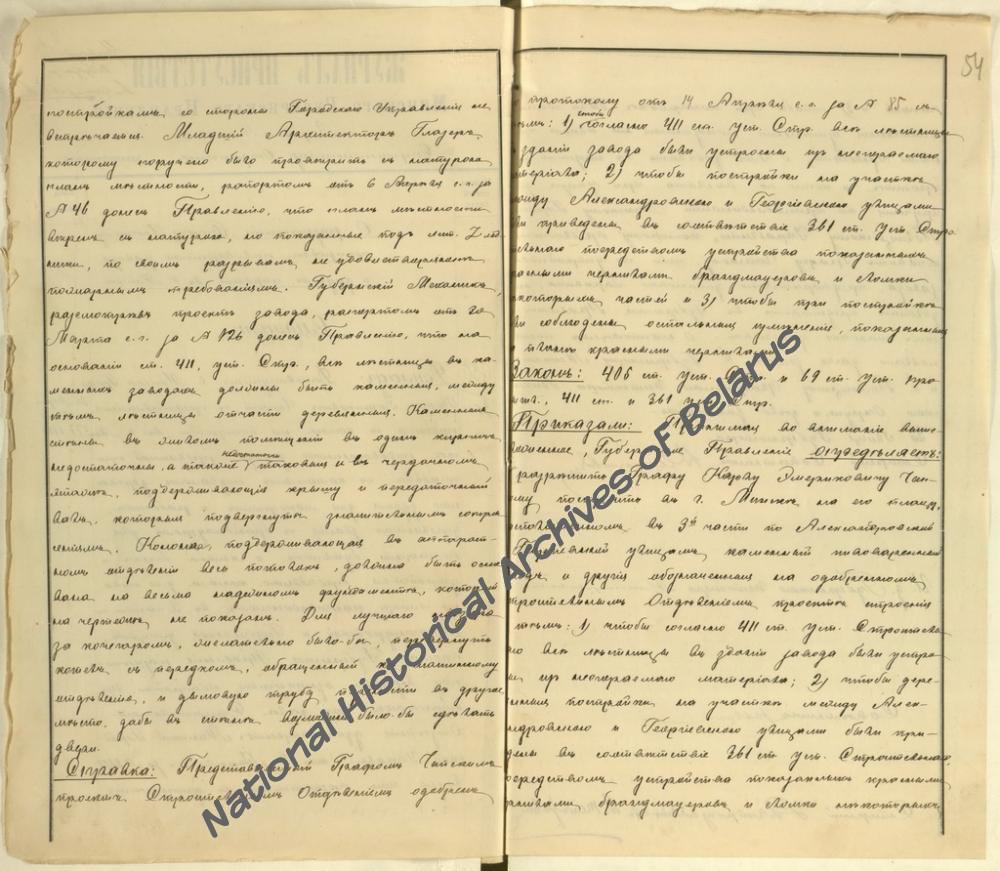 постройкамъ, со стороны Городского Управленія не
встрѣчаемъ. Младшій Архитекторъ Глазеръ,
которому поручено было провѣрить съ натурою
планъ мѣстности, рапортомъ отъ 6 Апрѣля с.г. за
№ 46 донесъ Правленію, что планъ мѣстности
вѣренъ съ натурою, но показанные подъ лит. Z
по своимъ разрывамъ, не удовлетворяютъ
пожарнымъ требованіямъ. Губернскій Механикъ,
разсмотрѣвъ проектъ завода, рапортомъ отъ
Марта с.г. за № 126 донесъ Правленію, что на
основаніи ст. 411, уст. Стр., всѣ лѣстницы въ ка-
менныхъ заводахъ должны быть каменныя, между
тѣмъ лѣстницы отчасти деревянныя. Каменныя
стѣны въ толщиною въ одинъ кирпичъ
недостаточны, а также таковыя и въ чердачномъ
этажѣ, поддерживающія крышу и передаточный
валъ, которыя подвергнутъ значительнымъ сотря-
сеніямъ. Колонна, поддерживающая въ аппарат-
номъ отдѣленіи весь потолокъ, должна быть осно
вана на весьма надежномъ фундаментѣ, который
на чертежѣ не показанъ. Для лучшаго
за кочегаромъ, желательно было-бы, перевернуть
котелъ съ передкомъ, обращеннымъ къ машинному
отдѣленію, и дымовую трубу въ другое
мѣсто, дабы въ стѣнѣ возможно было-бы сдѣлать
двери.
Справка: Представленный Графомъ Чапскимъ
проектъ Строительнымъ Отдѣленіемъ одобренъ
протоколу отъ 14 Апрѣля с.г. за № 85 съ
тѣмъ: 1) чтобы согласно 411 ст. Уст. Стр. всѣ лѣстницы
зданіи завода были устроены изъ несгораемаго
матеріала; 2) чтобы постройки на участкѣ
между Александровскою и Георгіевскою улицами
приведены въ соотвѣтствіе 361 ст. Уст. Стро
тельнаго посредствомъ устройства показанныхъ
красными чернилами брандмауеровъ и ломки
которыхъ частей и 3) чтобы при постройкѣ
соблюдены остальныя измѣненія, показанныя
красными чернилами.
Законъ: 406 ст. Уст. и 69 ст. Уст. про
411 ст. и 361 Стр.
Приказали: Принимая во вниманіе выше-
изложенное, Губернское Правленіе опредѣляетъ:
разрѣшить Графу Карлу Эмериковичу Чап-
скому построить въ г. Минскѣ на его плацу,
въ 3й части по Александровской
Георгіевской улицамъ, каменный пивоваренный
заводъ и другія обозначенныя на одобренномъ
Строительнымъ Отдѣленіемъ проектѣ строенія
съ тѣмъ: 1) чтобы согласно 411 ст. Уст. Строитель
наго всѣ лѣстницы въ зданіи завода были устро
ены изъ несгораемаго матеріала; 2) чтобы дере-
вянныя постройки на участкѣ между Алек-
сандровскою и Георгіевскою улицами были при-
ведены въ соотвѣтствіе 361 ст. Строительнаго
посредствомъ устройства показанныхъ красными
чернилами брандмауеровъ и ломки нѣкоторыхъ
54
National Historical Archives of Belarus